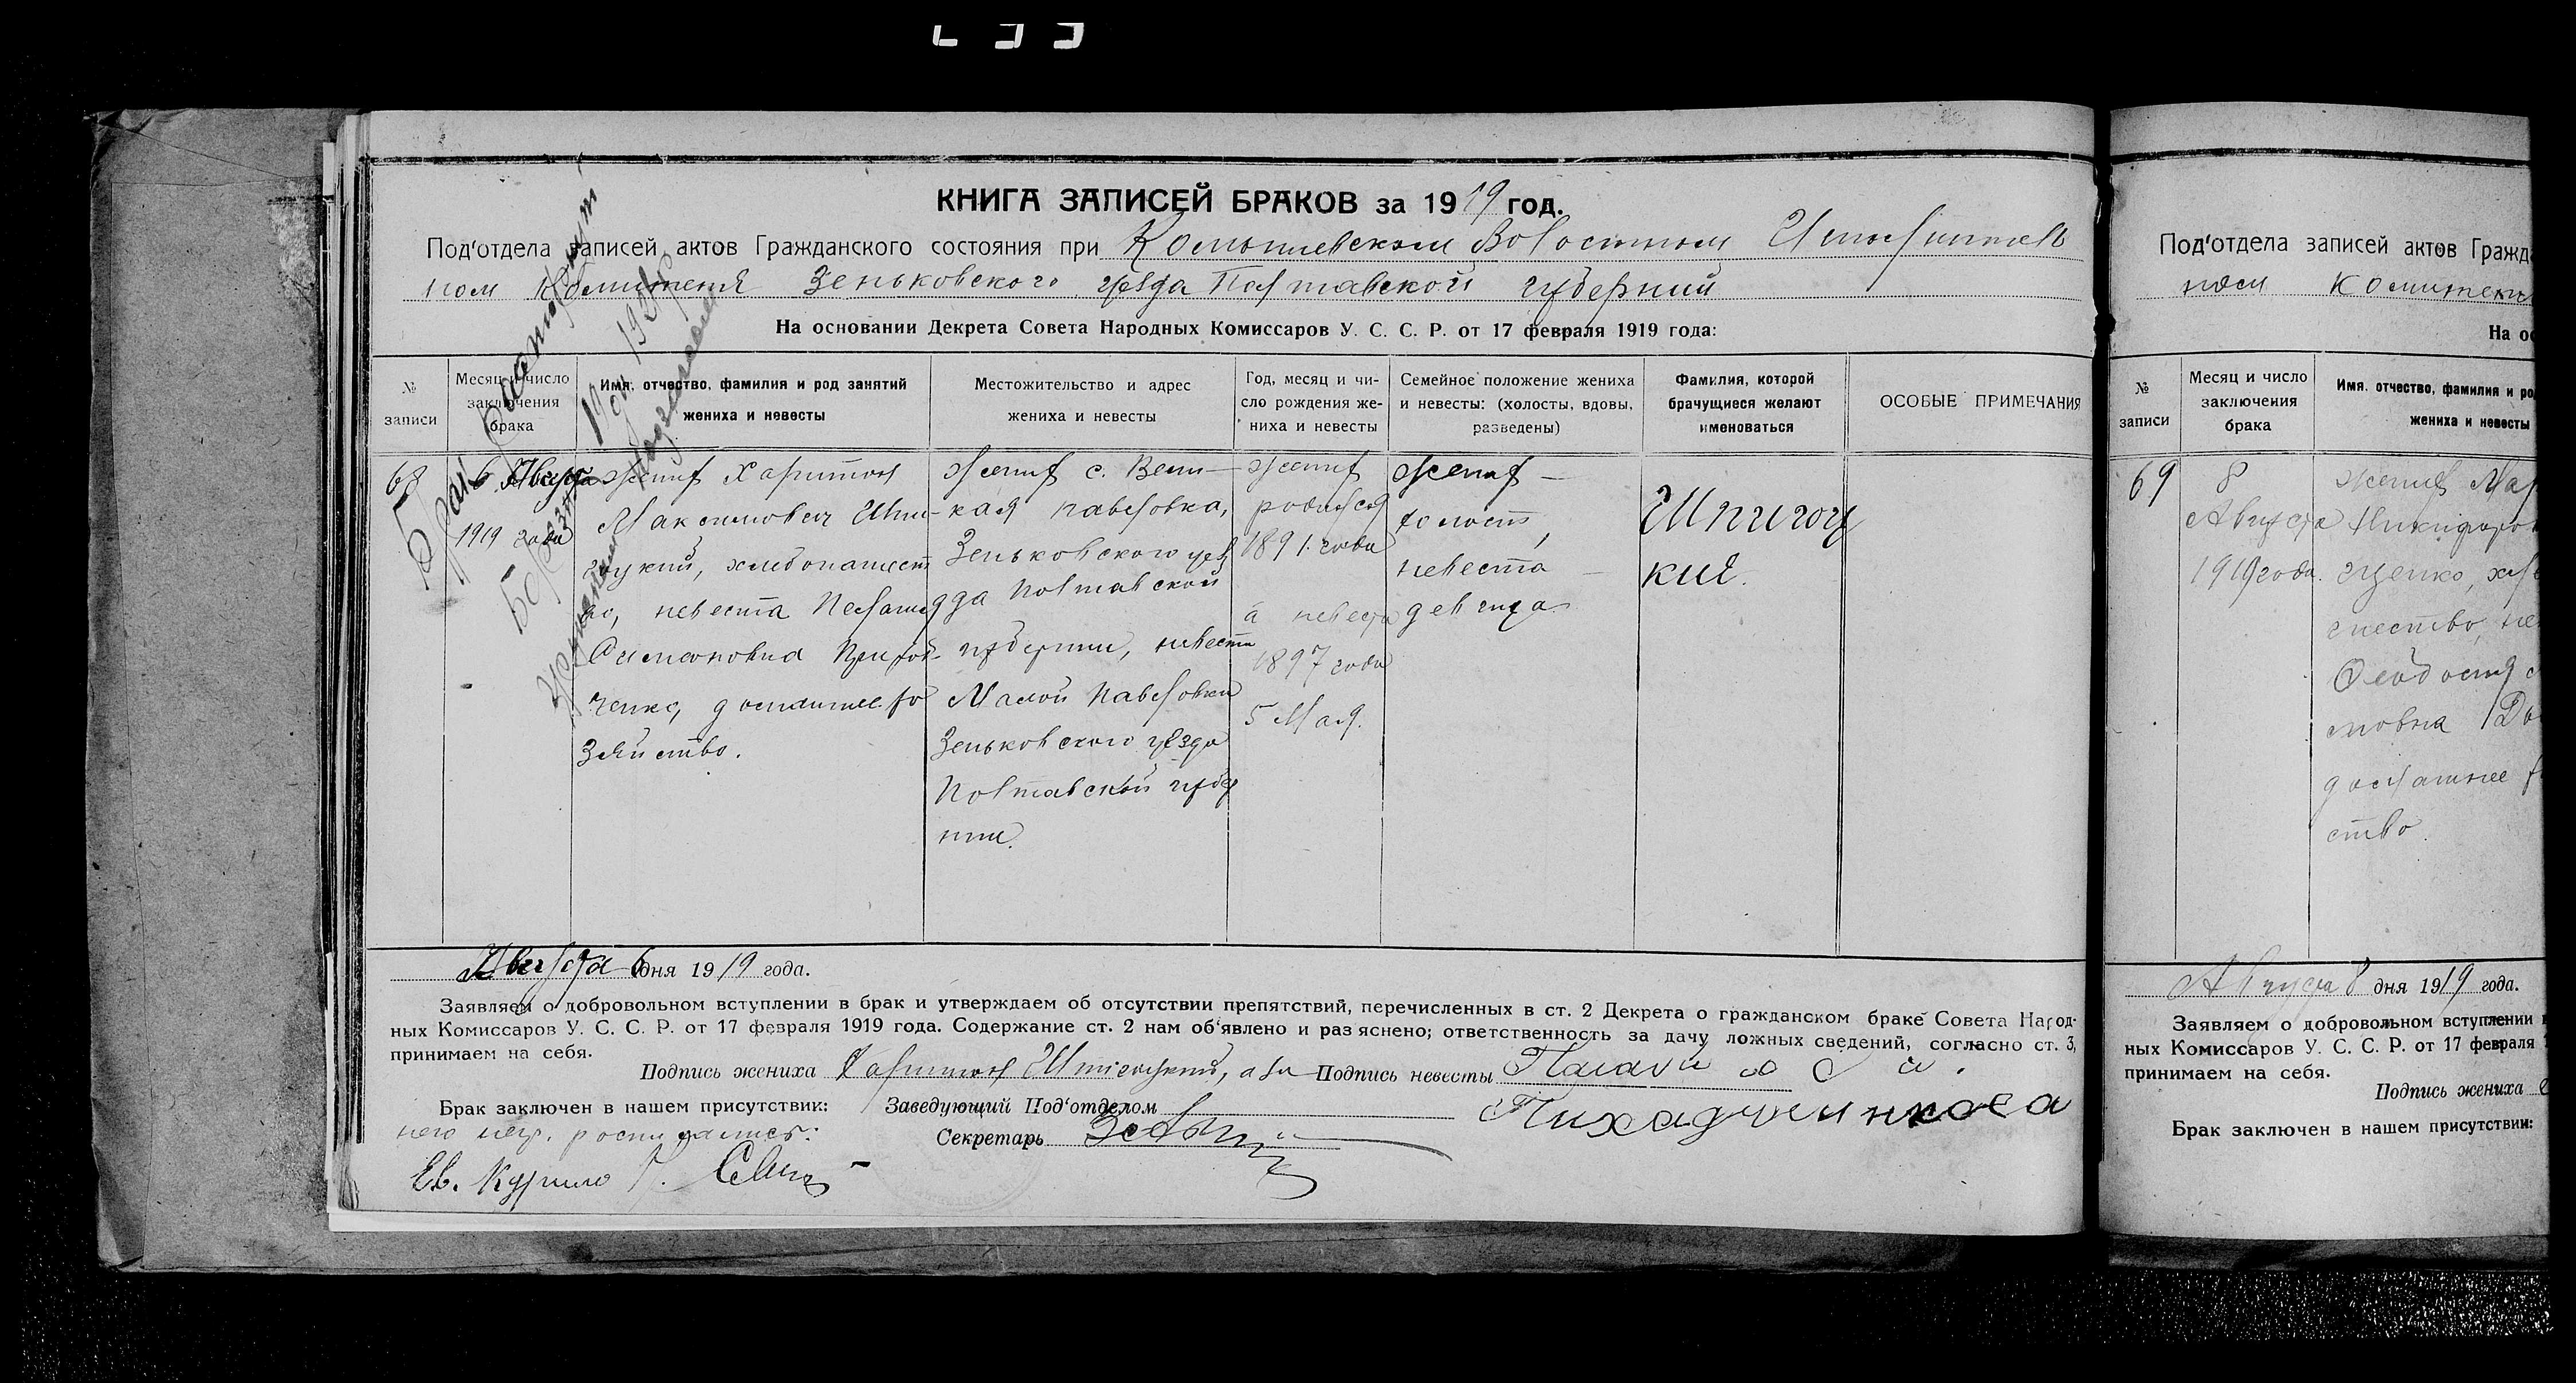 КНИГА ЗАПИСЕЙ БРАКОВ за 1919 год.
Под'отдела записей актов Гражданского состояния при Комышевском Волостном Исполнитель
ном Комитете Зеньковского уезда Полтавской губернии
На основании Декрета Совета Народных Комиссаров У. С. С. Р. от 17 февраля 1919 года:
№ записи
Месяц и число заключения брака
Имя, отчество, фамилия и род занятий жениха и невесты
Местожительство и адрес жениха и невесты
Год, месяц и чи-
сло рождения же-
ниха и невесты
Семейное положение жениха
и невесты: (холосты, вдовы,
разведены)
Фамилия, которой
брачущиеся желают
именоваться
ОСОБЫЕ ПРИМЕЧАНИЯ
68
6 Августа
1919 года
Брак
жених Харитон
Максимович Шпи-
гоцкий, хлебопашест
во, невеста Пелагия
Симоновна
ченко, домашнее хо
зяйство.
Жених с. Вели-
кая Павловка,
Зеньковского уез
да Полтавской
губернии, невеста
Малой Павловки
Зеньковского уезда
Полтавской губер
нии.
жених
родился
1891 года
а невеста
1897 года
5 Мая.
жених —
холост,
невеста —
девица
Шпигоц
кие.
Августа 6 дня 1919 года.
Заявляем о добровольном вступлении в брак и утверждаем об отсутствии препятствий, перечисленных в ст. 2 Декрета о гражданском браке Совета Народ-
ных Комиссаров У. С. С. Р. от 17 февраля 1919 года. Содержание ст. 2 нам об'явлено и раз'яснено; ответственность за дачу ложных сведений, согласно ст. 3,
принимаем на себя.
Подпись жениха Харитон Шпігоцький, а за Подпись невесты
Брак заключен в нашем присутствии: Заведующий Под'отделом
него негр. росписались:
Секретарь
Ев. Курило
Под'отдела записей актов Гражд
ном Комитете
На ос
№ записи
Месяц и число
заключения
брака
Имя, отчество, фамилия и ро
жениха и невесты
69
8
Августа
1919 года.
жених Мар
Никифоров
ценко, хлѣ
чество, не
Феодосия
мовна
домашнее
ство.
Августа 8 дня 1919 года.
Заявляем о добровольном вступлении в
ных Комиссаров У. С. С. Р. от 17 февраля 1
принимаем на себя.
Подпись жениха
Брак заключен в нашем присутствии: